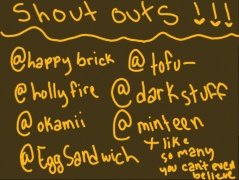 Shout outs !!!
@happy brick @tofu-
@hollyfire @darkstuff
@okamii @minteen
@EggSandwich + like
so many
you can't even
believe